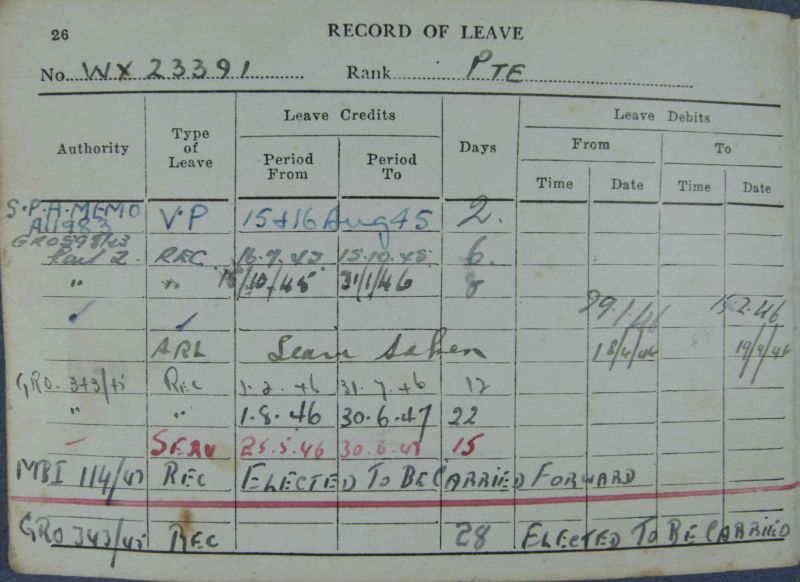 26
RECORD OF LEAVE
No. WX 23391 Rank PTE
Authority Type of Leave Leave Credits Days Leave Debits
Period From Period To From To
Time Date Time Date
S.P.A. MEMO A11983 V.P 15+16 Aug 45 2.
GRO 598/43 Part 2 REC 16.7.45 15.10.45 6.
" " 16/10/45 31/1/46 8
29.1.46 15.2.46
ARL Leave taken 18/4/46 19/4/46
GRO. 343/45 REC 1.2.46 31.7.46 12
" " 1.8.46 30.6.47 22
- SERV 25.5.46 30.6.47 15
MBI 114/47 REC ELECTED TO BE CARRIED FORWARD
GRO 343/45 REC 28 ELECTED TO BE CARRIED